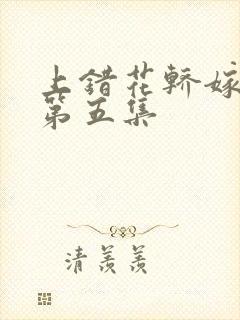 上错花轿嫁
第五集
清羡羡